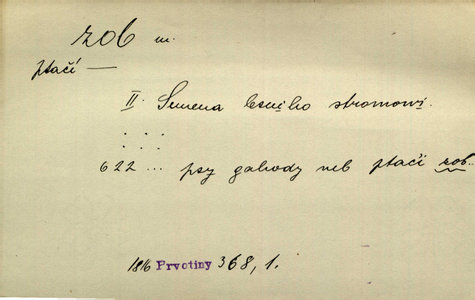 zob m.
ptačí —
II. Semena lesního stromowí.
. . .
. . .
622 ... psý jahody neb ptačí zob.
1816 Prvotiny 368, 1.